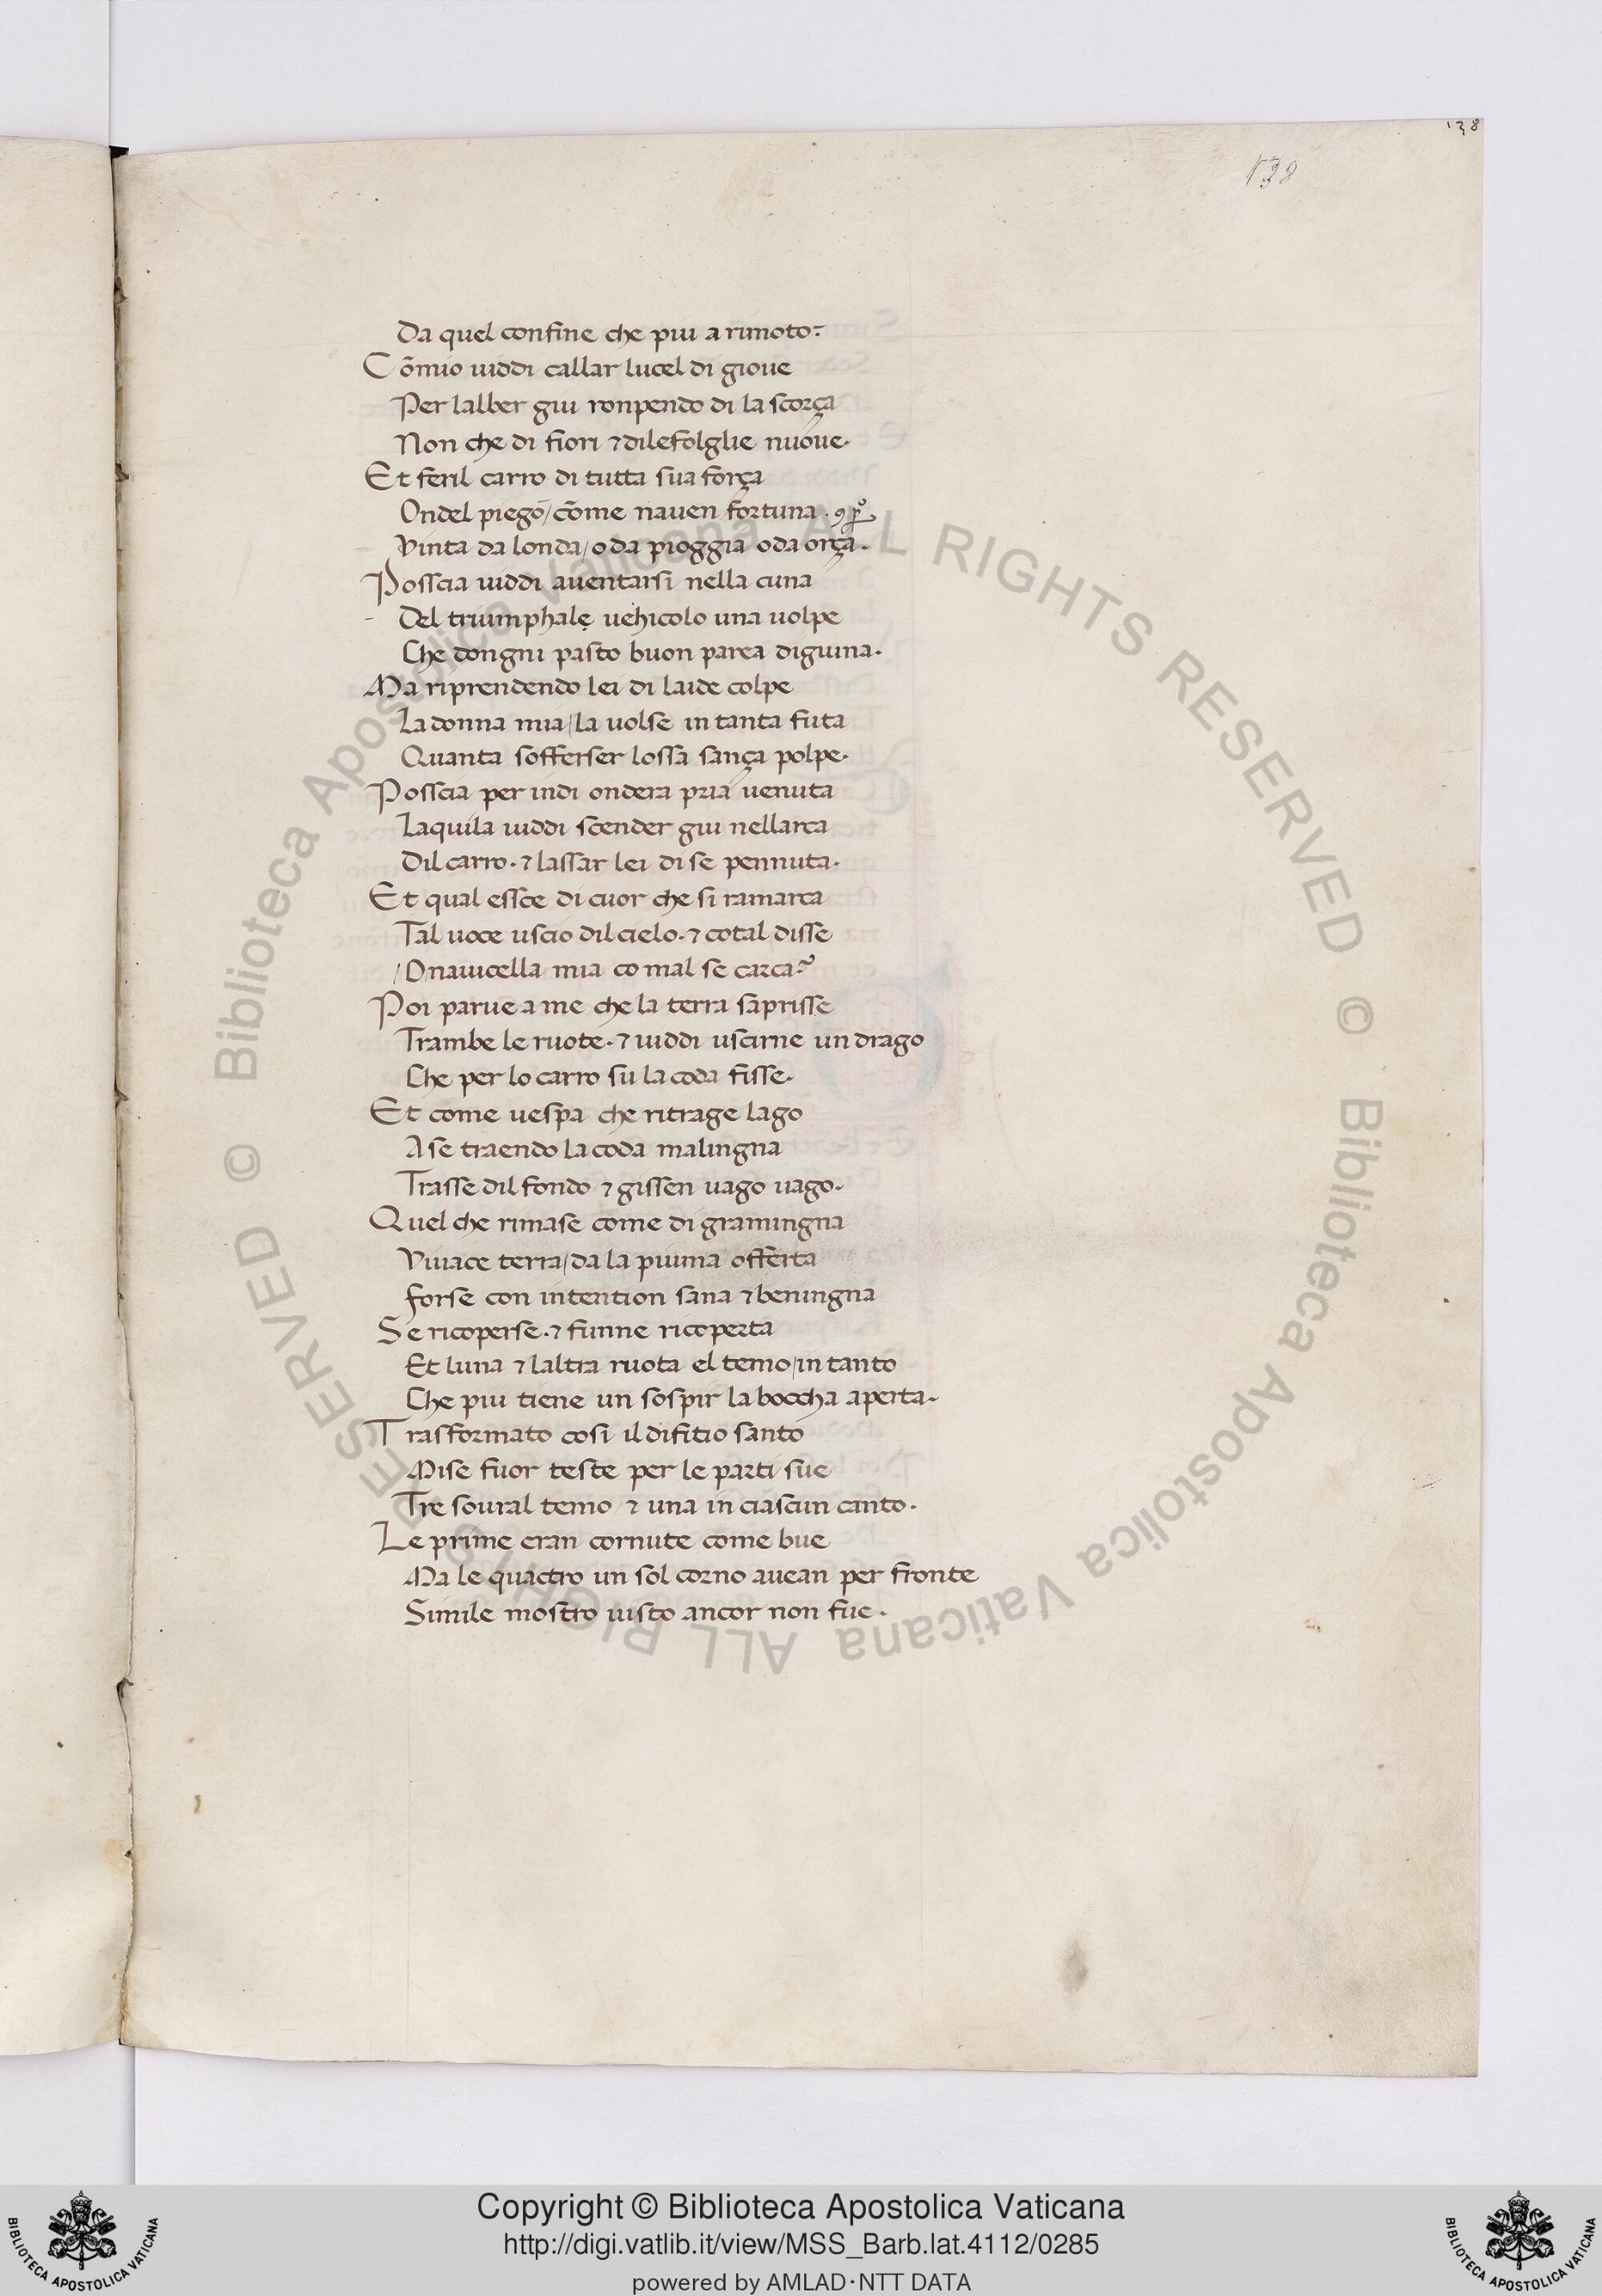 138
138
Da quel confine che piu a rimoto:
Cōmio uiddi callar lucel di gioue
Per lalber giu ronpendo di la scorça
Non che di fiori ⁊ dilefolglie nuoue.
Et feril carro di tutta sua força
Ondel piego / come nauen fortuna .
Vinta da londa / o da pioggia o da orça.
Posscia uiddi auentarsi nella cuna
Del triumphale uehicolo una uolpe
Che dongni pasto buon parea digiuna.
Ma riprendendo lei di laide colpe
La donna mia / la uolse in tanta futa
Quanta sofferser lossa sança polpe.
Posscia per indi ondera pria uenuta
Laquila uiddi scender giu nellarca
Dil carro. ⁊ lassar lei di se pennuta.
Et qual essce di cuor che si ramarca
Tal uoce uscio dil cielo. ⁊ cotal disse
/ O nauicella mia co mal se carca?
Poi parue a me che la terra saprisse
Trambe le ruote. ⁊ uiddi uscirne un drago
Che per lo carro su la coda fisse.
Et come uespa che ritrage lago
A se traendo la coda malingna
Trasse dil fondo ⁊ gissen uago uago.
Quel che rimase come di gramingna
Viuace terra / da la piuma offerta
forse con intention sana ⁊ beningna
Se ricoperse. ⁊ funne ricoperta
Et luna ⁊ laltra ruota el temo / in tanto
Che piu tiene un sospir la boccha aperta.
Trasformato cosi il difitio santo
Mise fuor teste per le parti sue
Tre soural temo ⁊ una in ciascun canto.
Le prime eran cornute come bue
Ma le quactro un sol corno auean per fronte
Simile mostro uisto ancor non fue.
© Biblioteca Apostolica Vaticana ALL RIGHTS RESERVED © Biblioteca Apostolica Vaticana ALL RIGHTS RESERVED
Copyright © Biblioteca Apostolica Vaticana
http://digi.vatlib.it/view/MSS_Barb.lat.4112/0285
powered by AMLAD·NTT DATA
BIBLIOTECA APOSTOLICA VATICANA
BIBLIOTECA APOSTOLICA VATICANA